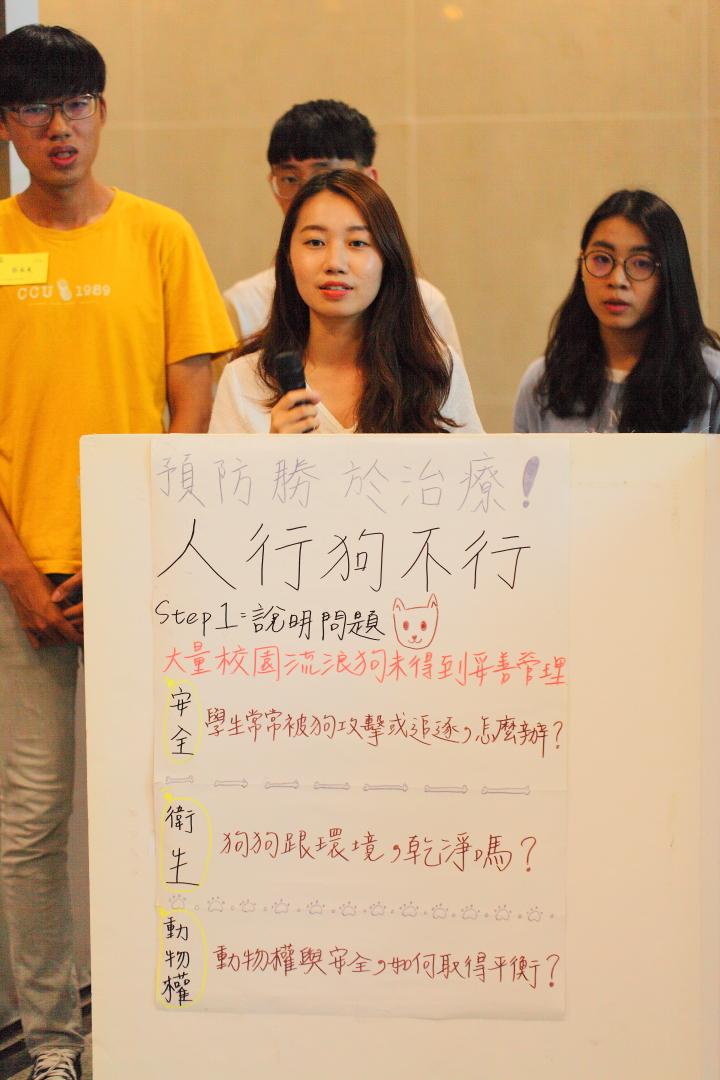 CCU 1989
預防勝於治療！
人行狗不行
Step1：說明問題
大量校園流浪狗未得到妥善管理
安全
學生常常被狗攻擊或追逐，怎麼辦？
衛生
狗狗跟環境，乾淨嗎？
動物權
動物權與安全，如何取得平衡？